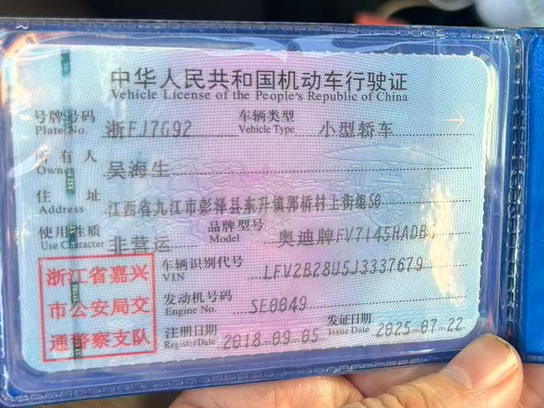 中华人民共和国机动车行驶证
Vehicle License of the People's Republic of China
号牌号码 浙FJ7G92 车辆类型 小型轿车
Plate No. Vehicle Type
所有人 吴海生
Owner
住址 江西省九江市彭泽县东升镇郭桥村上街组50
Address
使用性质 非营运 品牌型号 奥迪牌FV7145HADBG
Use Character Model
浙江省嘉兴
市公安局交
通警察支队
车辆识别代号 LFV2B28U5J3337679
VIN
发动机号码 SE0049
Engine No.
注册日期 2018-09-05 发证日期 2025-07-22
Register Date Issue Date